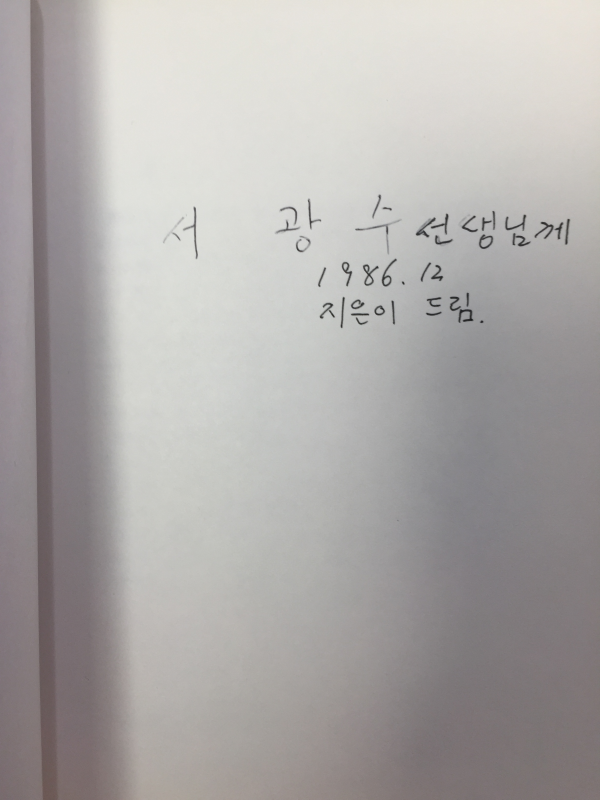 서 광 수 선생님께
1986. 12
지은이 드림.